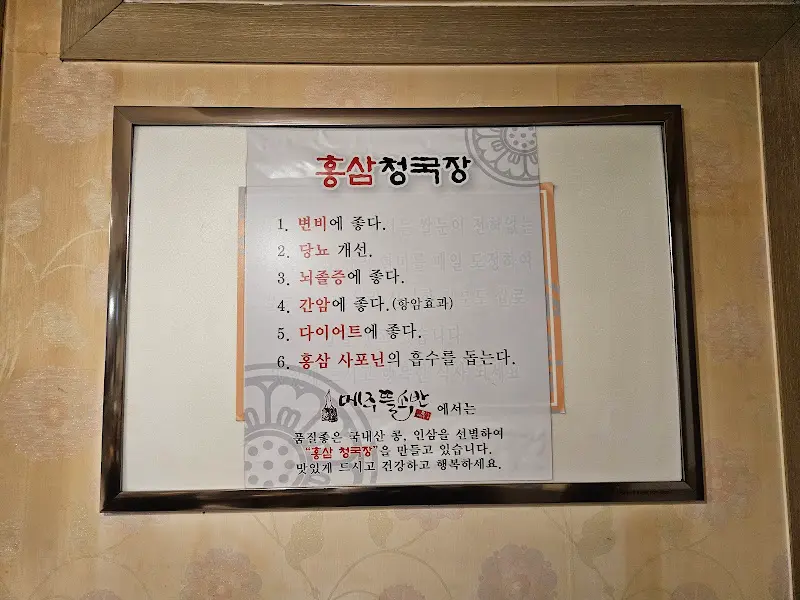 홍삼청국장
1. 변비에 좋다.
2. 당뇨 개선.
3. 뇌졸증에 좋다.
4. 간암에 좋다.(항암효과)
5. 다이어트에 좋다.
6. 홍삼 사포닌의 흡수를 돕는다.
메주뜰쇡반 에서는
품질좋은 국내산 콩, 인삼을 선별하여
"홍삼 청국장"을 만들고 있습니다.
맛있게 드시고 건강하고 행복하세요.